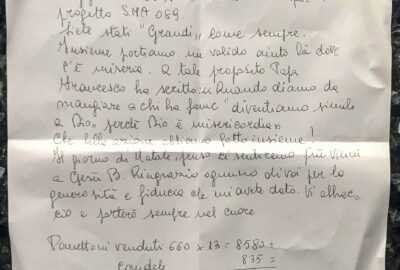 progetto SMA 089.
Siete stati "Grandi", come sempre.
Insieme portiamo un valido aiuto là dove
c'è miseria. A tale proposito Papa
Francesco ha scritto: "Quando diamo da
mangiare a chi ha fame "diventiamo simili
a Dio, perché Dio è misericordia»
Che bell'azione abbiamo fatto insieme!
Il giorno di Natale, penso ci sentiremo più vicini
a Gesù B. Ringrazio ognuno di voi per la
generosità e fiducia che mi avete dato. Vi abbrac-
cio e porterò sempre nel cuore
Panettoni venduti 660 x 13 = 8580 =
candele 835 =